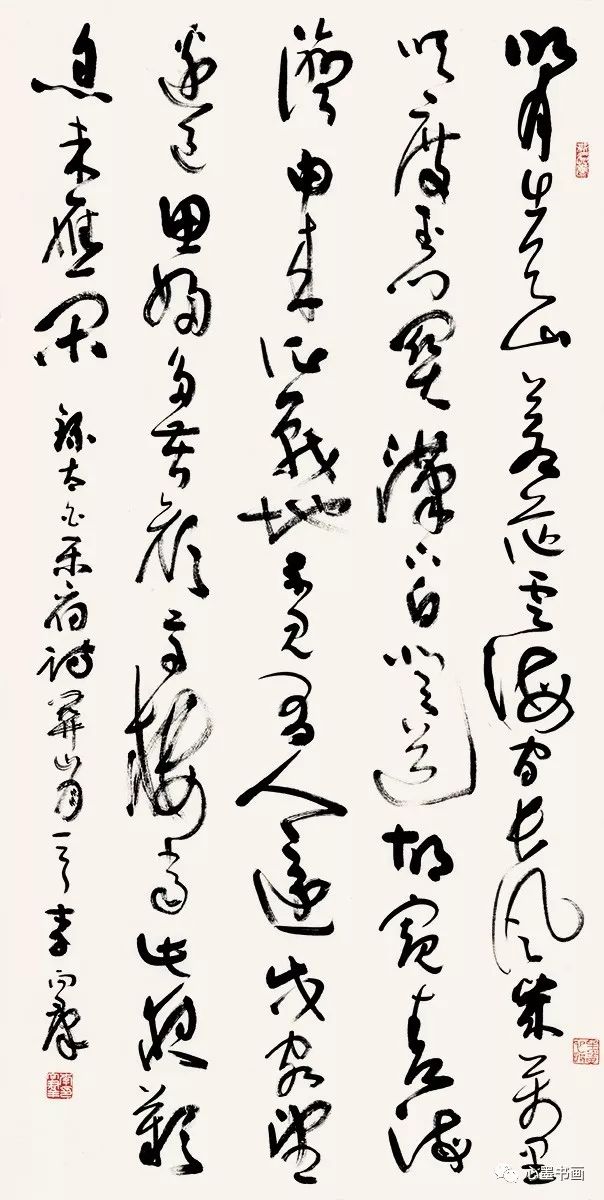 明月出天山蒼茫雲海間長風幾萬里
吹度玉門關漢下白登道胡窺青海
灣由來征戰地不見有人還戍客望
邊邑思歸多苦顏高樓當此夜歎
息未應閑 錄太白樂府詩關山月一首 李
心墨书画